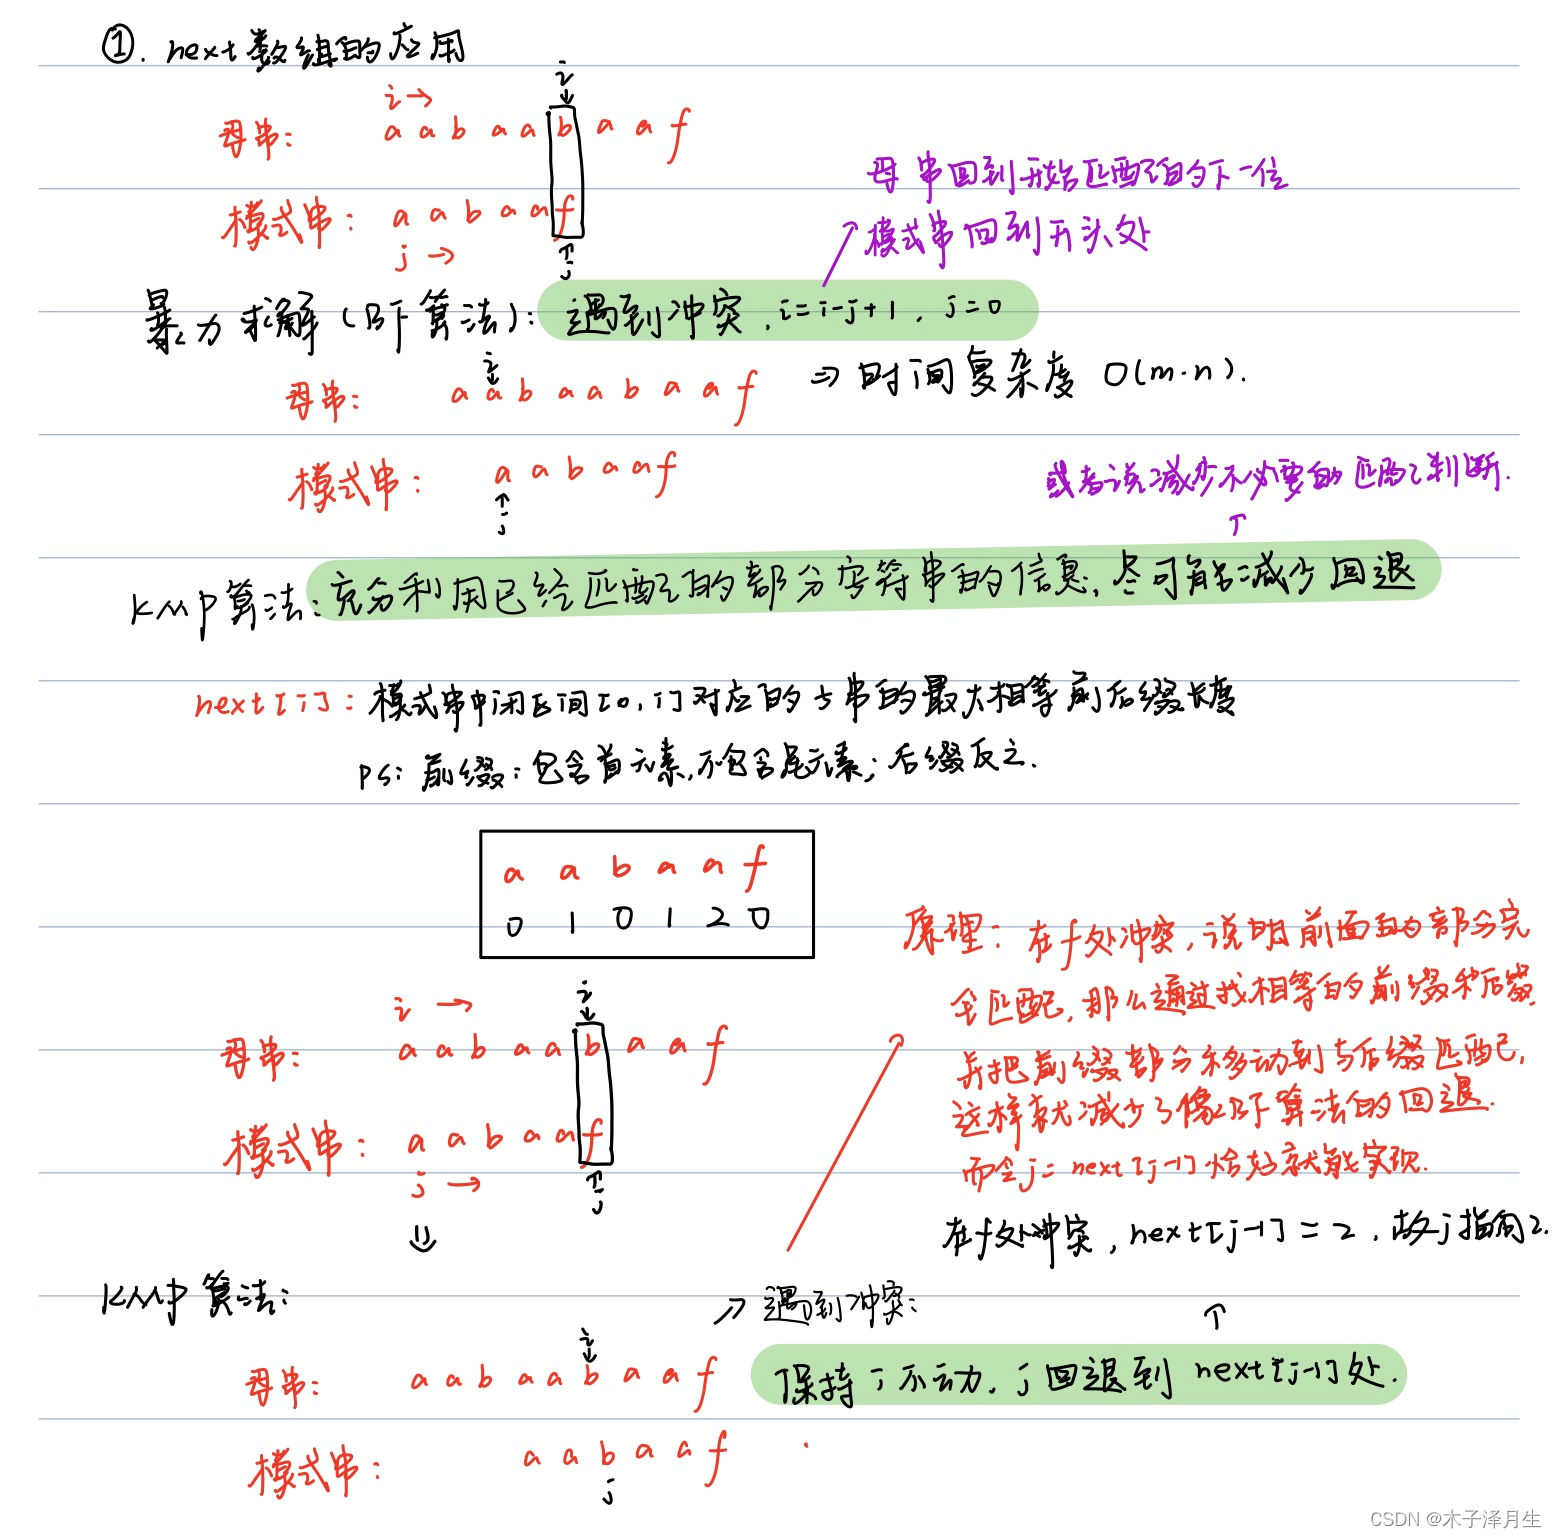 ①. next数组的应用
i
i →
母串: a a b a a b a a f
母串回到开始匹配的下一位
模式串: a a b a a f
模式串回到开头处
j →
j
暴力求解(BF算法): 遇到冲突, i=i-j+1, j=0
i
母串: a a b a a b a a f ⇒ 时间复杂度 O(m·n).
模式串: a a b a a f
或者说减少不必要的匹配判断.
j
KMP算法: 充分利用已经匹配的部分字符串的信息, 尽可能减少回退
next[i]: 模式串中闭区间[0,i]对应的子串的最大相等前后缀长度
PS: 前缀: 包含首元素,不包含尾元素; 后缀反之.
a a b a a f
0 1 0 1 2 0
原理: 在f处冲突, 说明前面的部分完
全匹配, 那么通过找相等的前缀和后缀,
i → i
母串: a a b a a b a a f
并把前缀部分移动到与后缀匹配,
这样就减少了像BF算法的回退.
模式串: a a b a a f
而令j=next[j-1]恰好就能实现.
j →
j
在f处冲突, next[j-1]=2, 故j指向2.
KMP算法:
遇到冲突:
i
母串: a a b a a b a a f
保持i不动, j回退到next[j-1]处.
模式串: a a b a a f
j
CSDN @木子泽月生